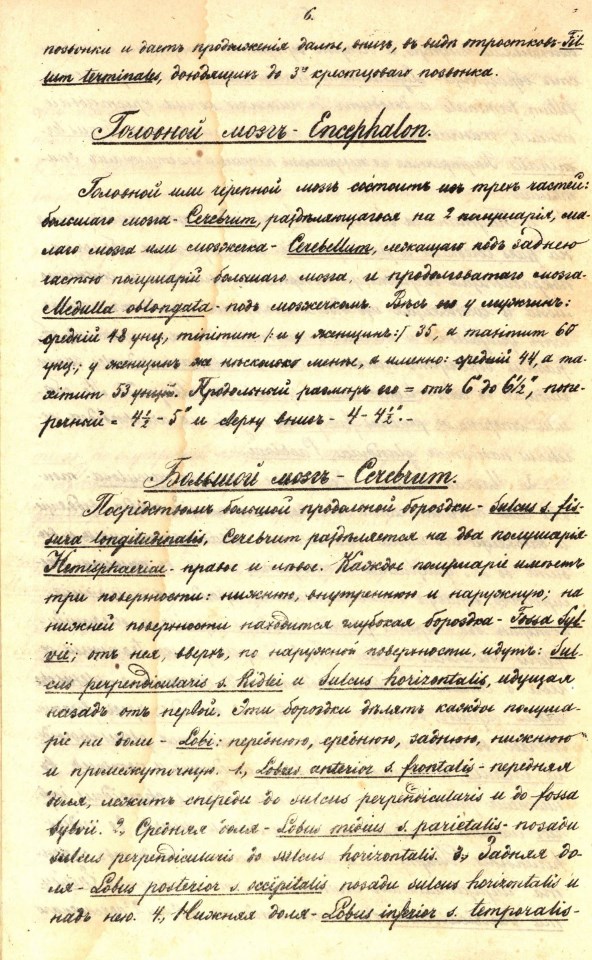 6.
позвонки и даетъ продолженія далѣе, внизъ, въ видѣ отростковъ - Fil-
lum terminales, доходящихъ до 3го крестцоваго позвонка.
Головной мозгъ - Encephalon.
Головной или черепной мозгъ состоитъ изъ трехъ частей:
большаго мозга - Cerebrum, раздѣляющагося на 2 полушарія, ма-
лаго мозга или мозжечка - Cerebellum, лежащаго подъ заднею
частью полушарій большаго мозга, и продолговатаго мозга -
Medulla oblongata - подъ мозжечкомъ. Вѣсъ его у мужчинъ:
средній 48 унц., minimum /: и у женщинъ :/ 35, а maximum 60
унц.; у женщинъ же нѣсколько менѣе, а именно: средній 44, а ma-
ximum 53 унцій. Продольный размѣръ его = отъ 6" до 6½", попе-
речный = 4½ - 5" и сверху внизъ - 4 - 4½". -
Большой мозгъ - Cerebrum.
Посрѣдствомъ большой продольной бороздки - Sulcus s. fis-
sura longitudinalis, Cerebrum раздѣляется на два полушарія -
Hemisphaeriae - правое и лѣвое. Каждое полушаріе имѣетъ
три поверхности: нижнюю, внутреннюю и наружную; на
нижней поверхности находится глубокая бороздка - Fossa Syl-
vii; отъ нея, вверхъ, по наружной поверхности, идутъ: Sul-
cus perpendicularis s. Ridlei и Sulcus horizontalis, идущая
назадъ отъ первой. Эти бороздки дѣлятъ каждое полуша-
ріе на доли - Lobi: переднюю, среднюю, заднюю, нижнюю
и промежуточную. 1., Lobus anterior s. frontalis - передняя
доля, лежитъ спереди до sulcus perpendicularis и до fossa
Sylvii. 2., Средняя доля - Lobus medius s. parietalis - позади
sulcus perpendicularis до sulcus horizontalis. 3., Задняя до-
ля - Lobus posterior s. occipitalis позади sulcus horizontalis и
надъ нею. 4., Нижняя доля - Lobus inferior s. temporalis -